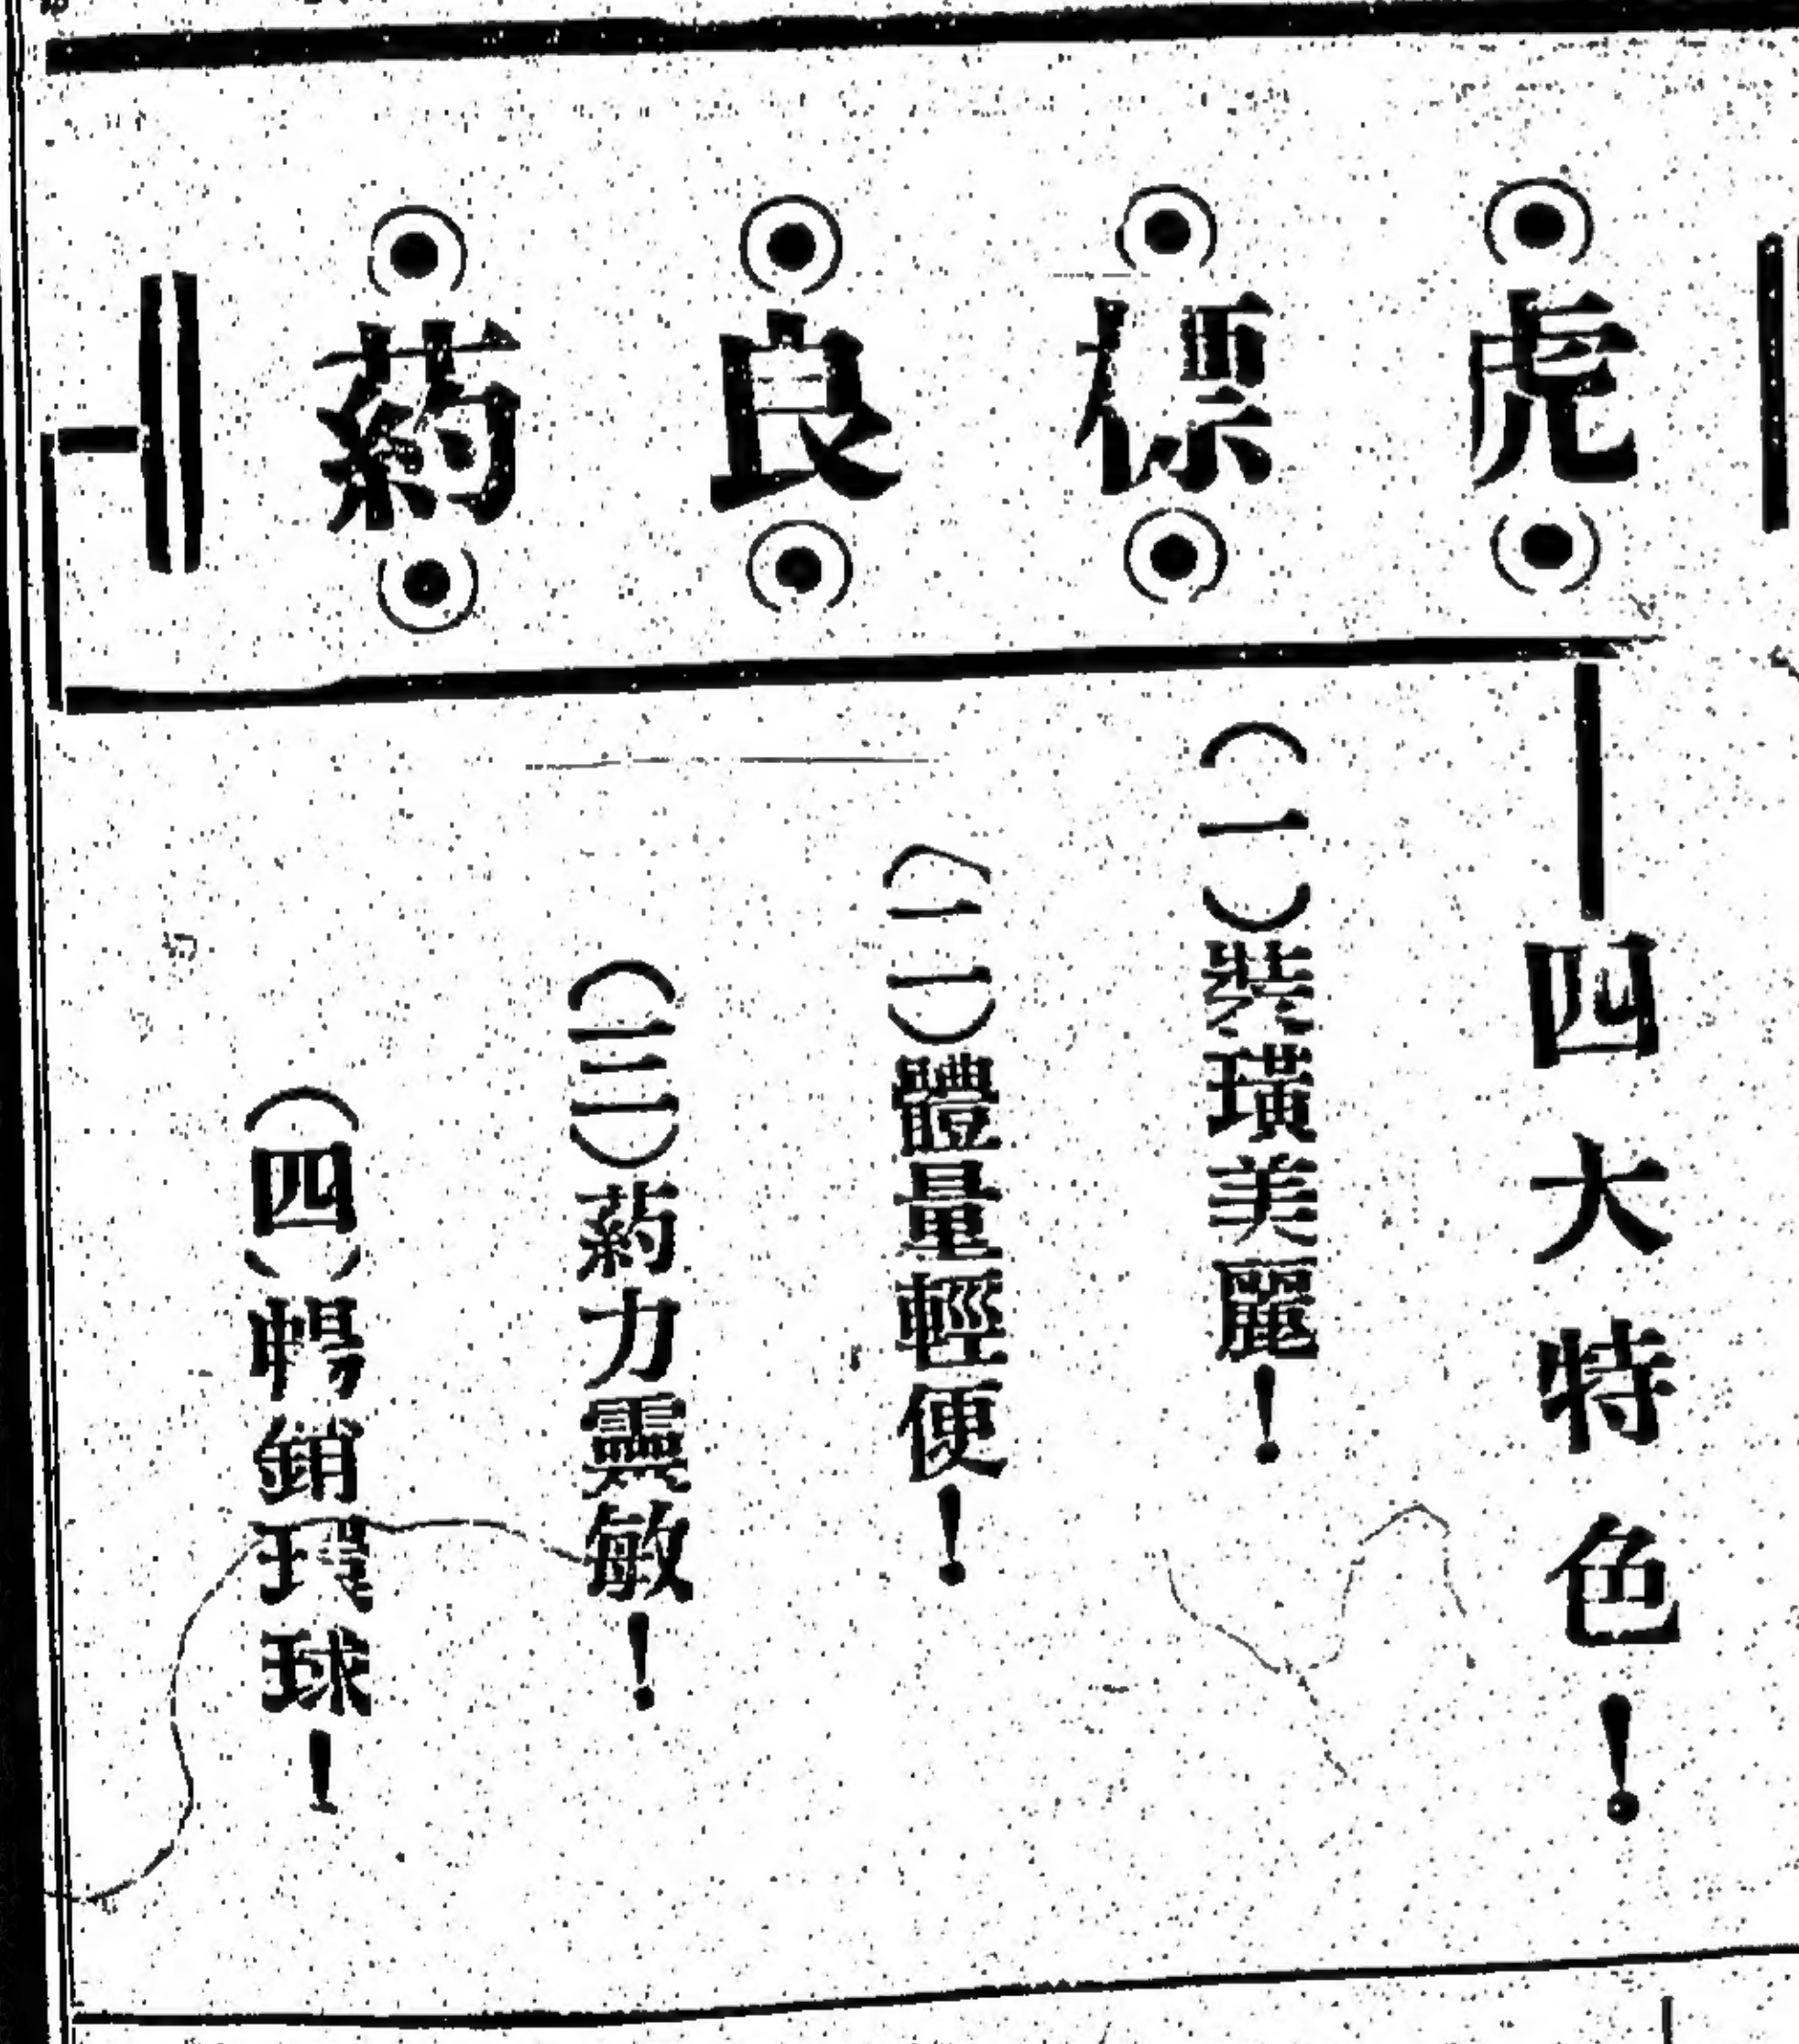 虎標良葯
四大特色！
（一）裝璜美麗！
（二）體量輕便！
（三）葯力靈敏！
（四）暢銷環球！